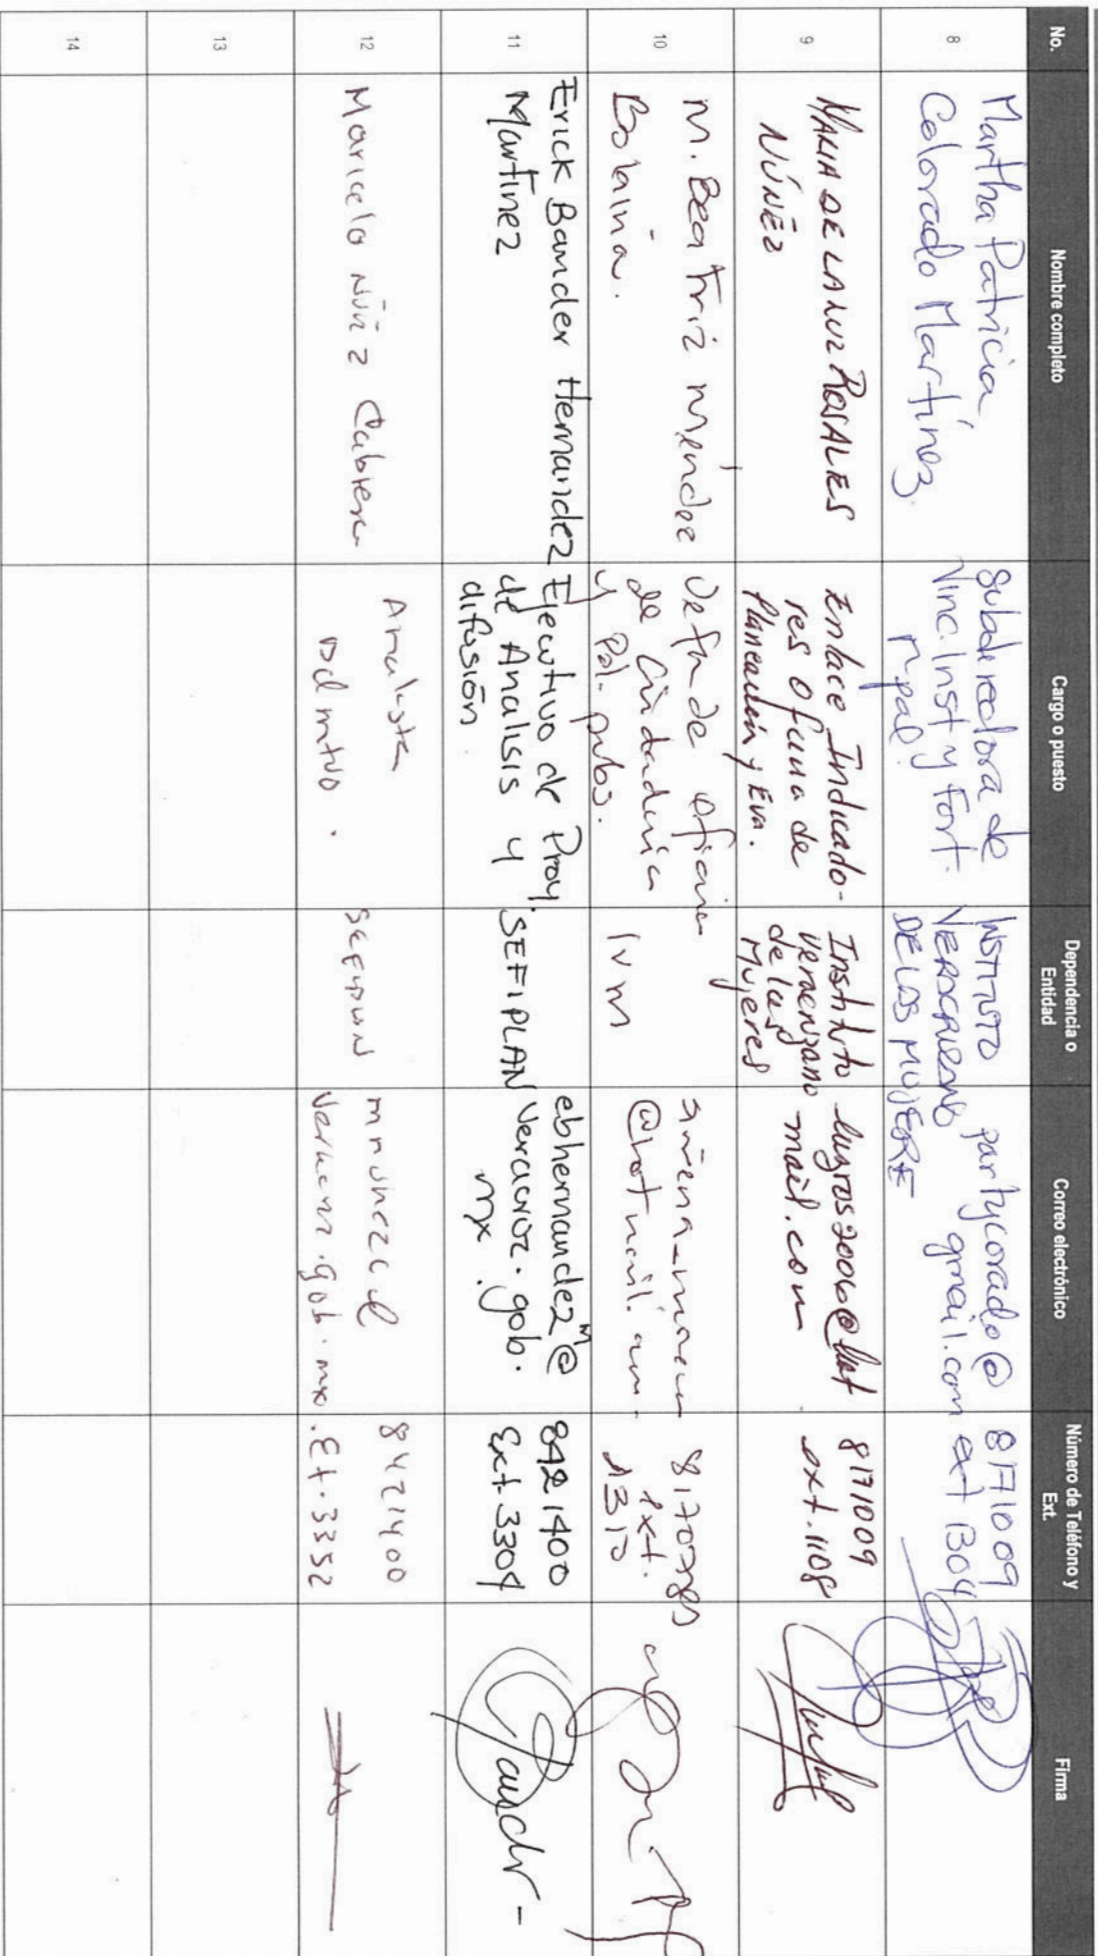 No.
Nombre completo
Cargo o puesto
Dependencia o
Entidad
Correo electrónico
Número de Teléfono y
Ext.
Firma
8
Martha Patricia
Colorado Martínez.
Subdirectora de
Vinc. Inst y Fort.
mpal.
INSTITUTO
VERACRUZANO
DE LAS MUJERE
partycorado@
gmail.com
8171009
ext 1304
9
MARIA DE LA LUZ ROSALES
NÚÑEZ
Enlace Indicado-
res Oficina de
Planeación y Eva.
Instituto
Veracruzano
de las
Mujeres
luzros2006@hot
mail.com
8171009
ext. 1108
10
M. Beatriz Méndez
Bolaina.
Jefa de Oficina
de Ciudadanía
y Pol. pubs.
IVM
@hotmail.com
ext.
1310
11
Erick Bander Hernandez
Martinez
Ejecutivo de Proy.
de Analisis y
difusión.
SEFIPLAN
ebhernandezm@
veracruz.gob.
mx
8421400
Ext. 3304
12
Maricela Núñez Cabrera
Analista
Admtvo.
SEFIPLAN
veracruz.gob.mx
8421400
Ext. 3352
13
14